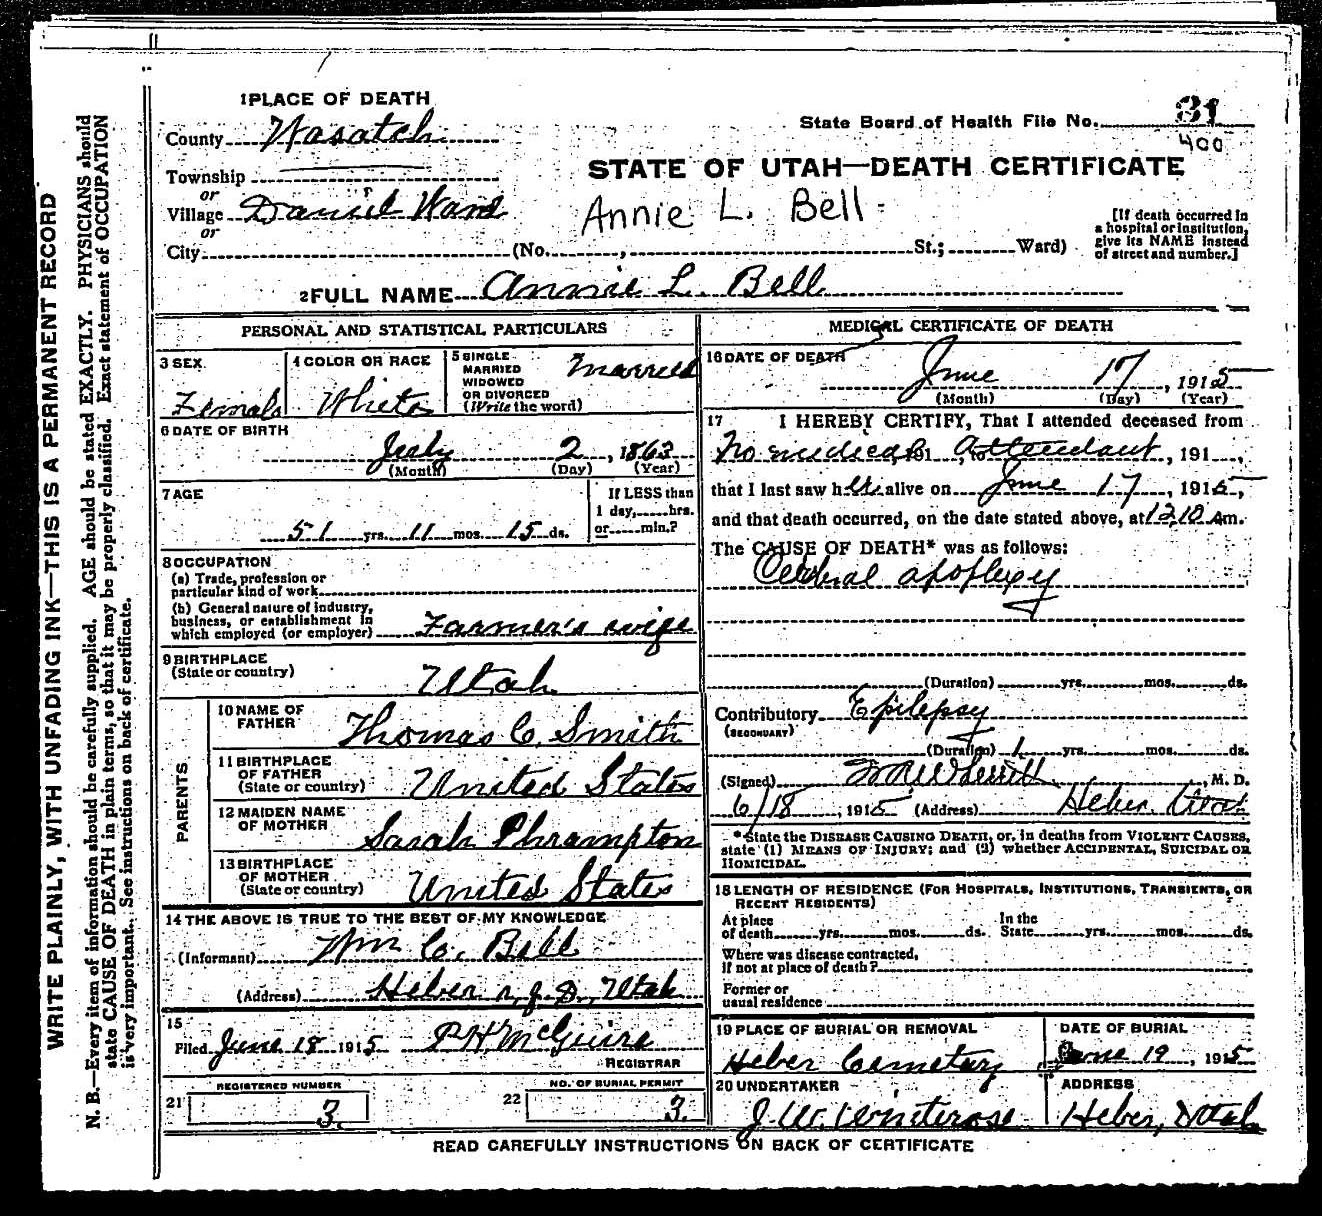 1 PLACE OF DEATH
County Wasatch
State Board of Health File No. 31
400
STATE OF UTAH—DEATH CERTIFICATE
Township
or
Village Daniel Ward
or
City (No. , St.; Ward)
Annie L. Bell
[If death occurred in
a hospital or institution,
give its NAME instead
of street and number.]
2 FULL NAME Annie L. Bell
PERSONAL AND STATISTICAL PARTICULARS
3 SEX
Female
4 COLOR OR RACE
White
5 SINGLE
MARRIED
WIDOWED
OR DIVORCED
(Write the word)
Married
6 DATE OF BIRTH
July 2, 1863
(Month) (Day) (Year)
7 AGE
51 yrs. 11 mos. 15 ds.
If LESS than
1 day, hrs.
or min.?
8 OCCUPATION
(a) Trade, profession or
particular kind of work
(b) General nature of industry,
business, or establishment in
which employed (or employer) Farmer's wife
9 BIRTHPLACE
(State or country)
Utah
PARENTS
10 NAME OF
FATHER
Thomas C. Smith
11 BIRTHPLACE
OF FATHER
(State or country)
United States
12 MAIDEN NAME
OF MOTHER
Sarah Phrampton
13 BIRTHPLACE
OF MOTHER
(State or country)
United States
14 THE ABOVE IS TRUE TO THE BEST OF MY KNOWLEDGE
(Informant) Wm C. Bell
(Address) Heber r.f.D., Utah
15
Filed June 18 1915 P H McGuire
REGISTRAR
REGISTERED NUMBER
21 3.
NO. OF BURIAL PERMIT
22 3.
MEDICAL CERTIFICATE OF DEATH
16 DATE OF DEATH
June 17, 1915
(Month) (Day) (Year)
17 I HEREBY CERTIFY, That I attended deceased from
No medical, 191 , to Attendant, 191 ,
that I last saw her alive on June 17, 1915,
and that death occurred, on the date stated above, at 12,10 Am.
The CAUSE OF DEATH* was as follows:
Cerebral apoplexy
(Duration) yrs. mos. ds.
Contributory Epilepsy
(SECONDARY)
(Duration) 1 yrs. mos. ds.
(Signed) Wherritt, M. D.
6/18, 1915 (Address) Heber Utah
* State the DISEASE CAUSING DEATH, or, in deaths from VIOLENT CAUSES,
state (1) MEANS OF INJURY; and (2) whether ACCIDENTAL, SUICIDAL OR
HOMICIDAL.
18 LENGTH OF RESIDENCE (FOR HOSPITALS, INSTITUTIONS, TRANSIENTS, OR
RECENT RESIDENTS)
At place
of death yrs. mos. ds.
In the
State yrs. mos. ds.
Where was disease contracted,
if not at place of death?
Former or
usual residence
19 PLACE OF BURIAL OR REMOVAL
Heber Cemetary
DATE OF BURIAL
June 19, 1915
20 UNDERTAKER
J. W. Winterose
ADDRESS
Heber, Utah
READ CAREFULLY INSTRUCTIONS ON BACK OF CERTIFICATE
WRITE PLAINLY, WITH UNFADING INK—THIS IS A PERMANENT RECORD
N. B.—Every item of information should be carefully supplied. AGE should be stated EXACTLY. PHYSICIANS should
state CAUSE OF DEATH in plain terms, so that it may be properly classified. Exact statement of OCCUPATION
is very important. See instructions on back of certificate.